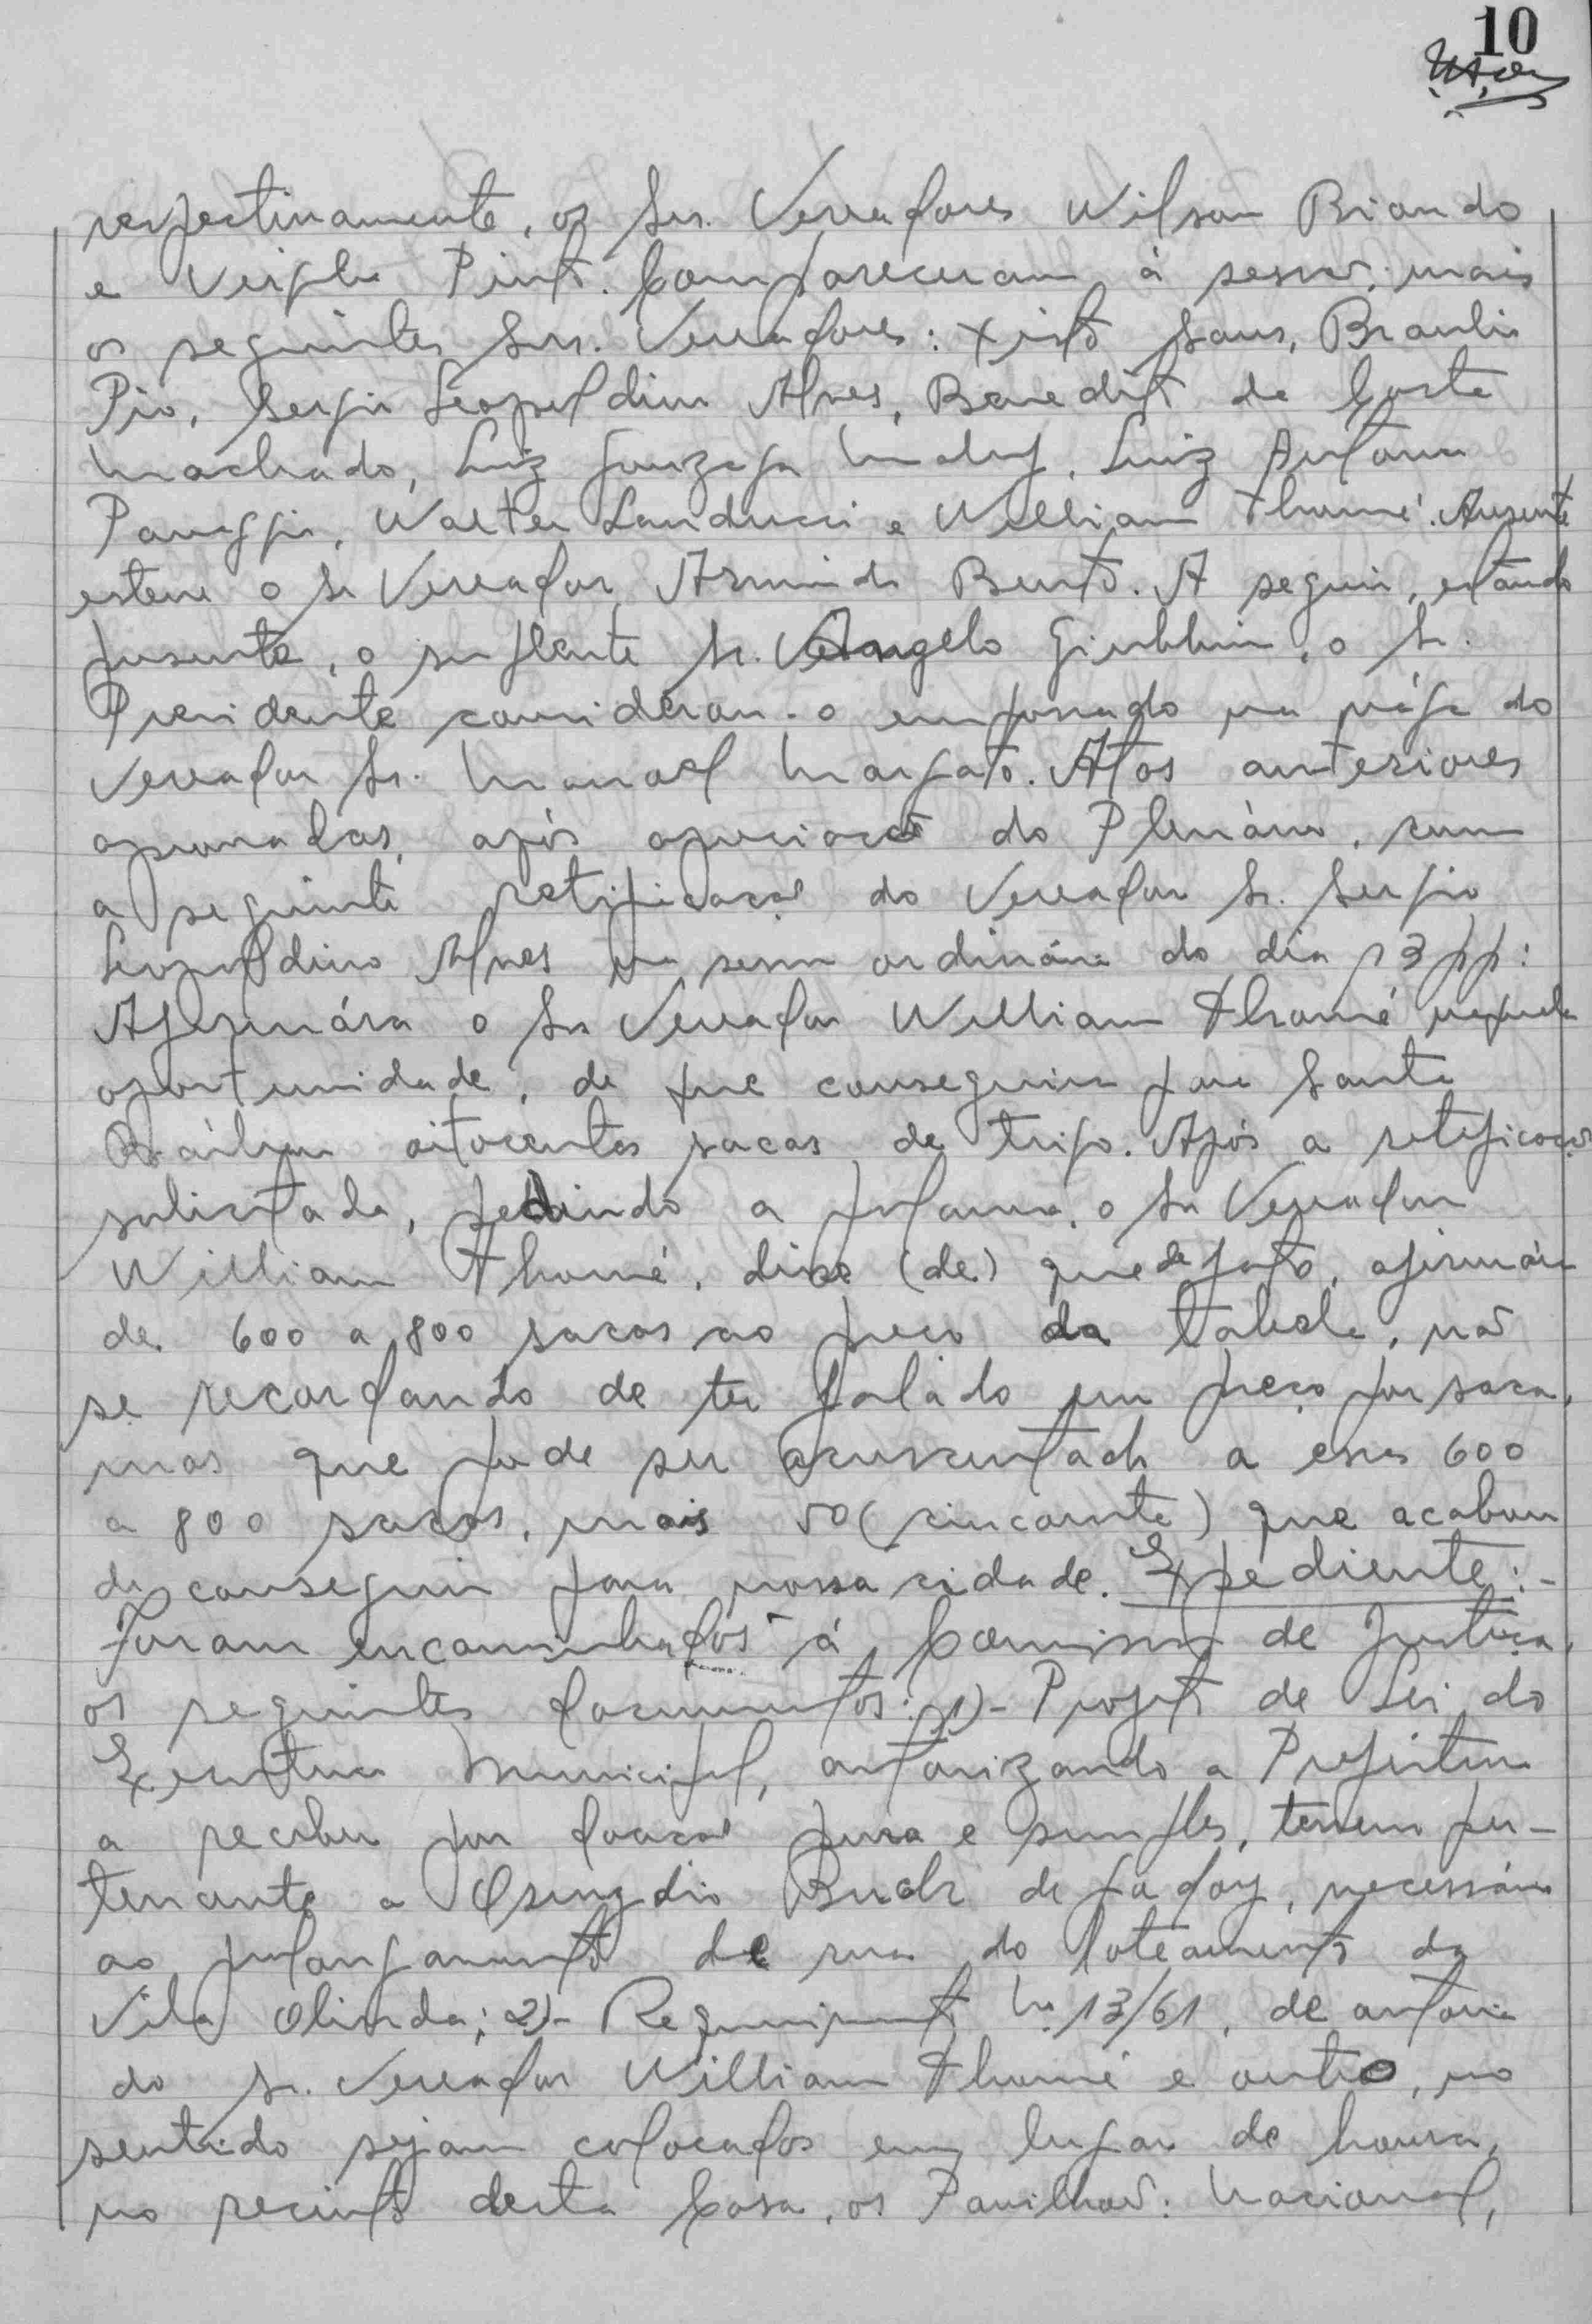 10
respectivamente, os Srs. Vereadores Wilson Biondo
e Virgilio Pinto. Compareceram à sessão, mais
os seguintes Srs. Vereadores: Xisto Sans, Braulio
Pio, Sergio Leopoldino Alves, Benedito da Costa
Machado, Luiz Gonzaga, Luiz Antonio
Panaggio, Walter Landucci e William Thomé. Ausente
esteve o Sr Vereador Armindo Bento. A seguir, estando
presente, o suplente Sr. Angelo Giubbina, o Sr.
Presidente considerou-o empossado na vaga do
Vereador Sr. Manoel Margato. Atas anteriores
aprovadas, após apreciação do Plenário, com
a seguinte retificação do Vereador Sr. Sergio
Leopoldino Alves na sessão ordinária do dia 13 pp:
Afirmára o Sr Vereador William Thomé naquela
oportunidade, de que conseguira para Santa
Bárbara oitocentos sacas de trigo. Após a retificação
solicitada, pedindo a palavra, o Sr Vereador
William Thomé, disse (de) que de fato, afirmára
de 600 a 800 sacas ao preço da tabela, não
se recordando de ter falado em preço por saca,
mas que pode ser acrescentado a esses 600
a 800 sacos, mais 50 (cincoenta) que acabou
de conseguir para nossa cidade. Expediente:-
Foram encaminhados à Comissão de Justiça,
os seguintes documentos: 1)- Projeto de Lei do
Executivo Municipal, autorizando a Prefeitura
a receber por doação pura e simples, terreno per-
tencente a Bueck de Godoy, necessário
ao prolongamento de rua do loteamento da
Vila Olinda; 2)- Requerimento No. 13/61, de autoria
do Sr. Vereador William Thomé e outro, no
sentido sejam colocados em lugar de honra,
no recinto desta Casa, os Pavilhões: Nacional,